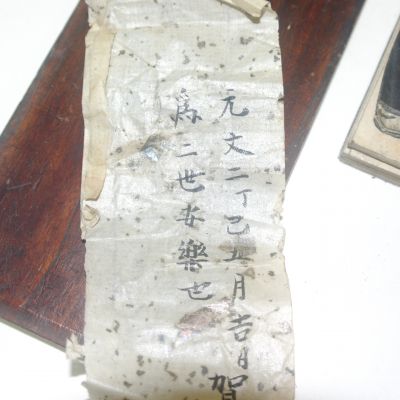 元文二丁巳五月吉日賀
為二世安樂也